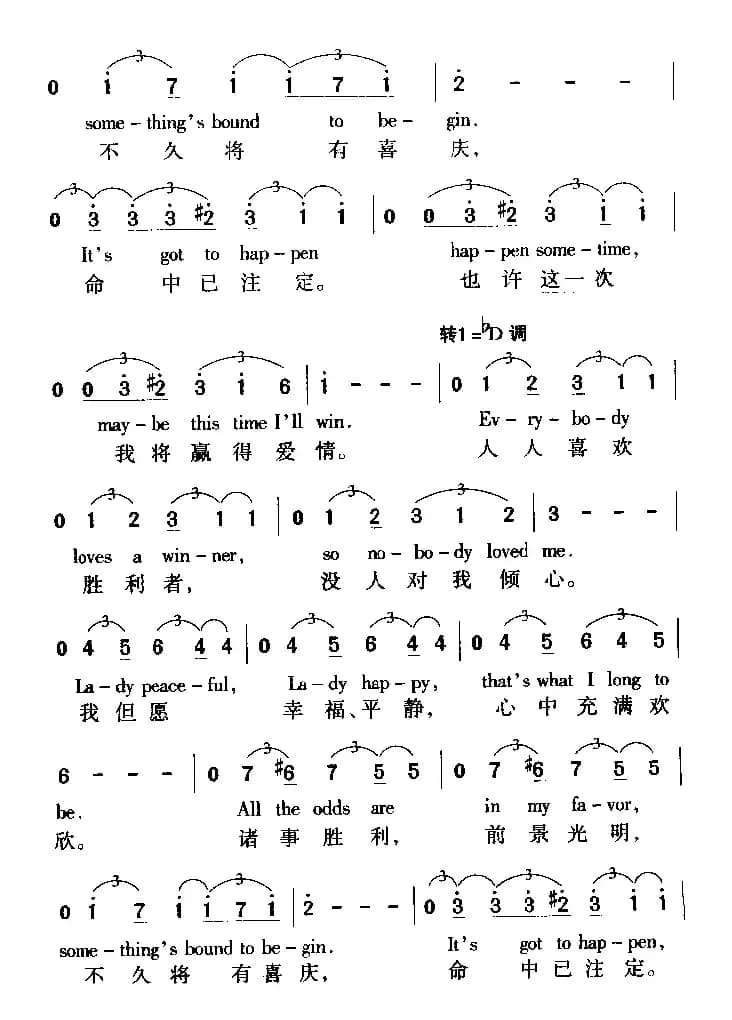 0 i 7 i i 7 i | 2 - - - |
some-thing's bound to be- gin.
不 久 将 有 喜 庆,
0 3 3 3 #2 3 i i | 0 0 3 #2 3 i i
It's got to hap-pen hap-pen some-time,
命 中 已 注 定。 也 许 这 一 次
转1=♭D 调
0 0 3 #2 3 i 6 | i - - - | 0 1 2 3 1 1 |
may-be this time I'll win. Ev-ry-bo-dy
我 将 赢 得 爱 情。 人 人 喜 欢
0 1 2 3 1 1 | 0 1 2 3 1 2 | 3 - - - |
loves a win-ner, so no-bo-dy loved me.
胜 利 者, 没 人 对 我 倾 心。
0 4 5 6 4 4 | 0 4 5 6 4 4 | 0 4 5 6 4 5 |
La-dy peace-ful, La-dy hap-py, that's what I long to
我 但 愿 幸 福、平 静, 心 中 充 满 欢
6 - - - | 0 7 #6 7 5 5 | 0 7 #6 7 5 5 |
be. All the odds are in my fa-vor,
欣。 诸 事 胜 利, 前 景 光 明,
0 i 7 i i 7 i | 2 - - - | 0 3 3 3 #2 3 i i |
some-thing's bound to be-gin. It's got to hap-pen,
不 久 将 有 喜 庆, 命 中 已 注 定。